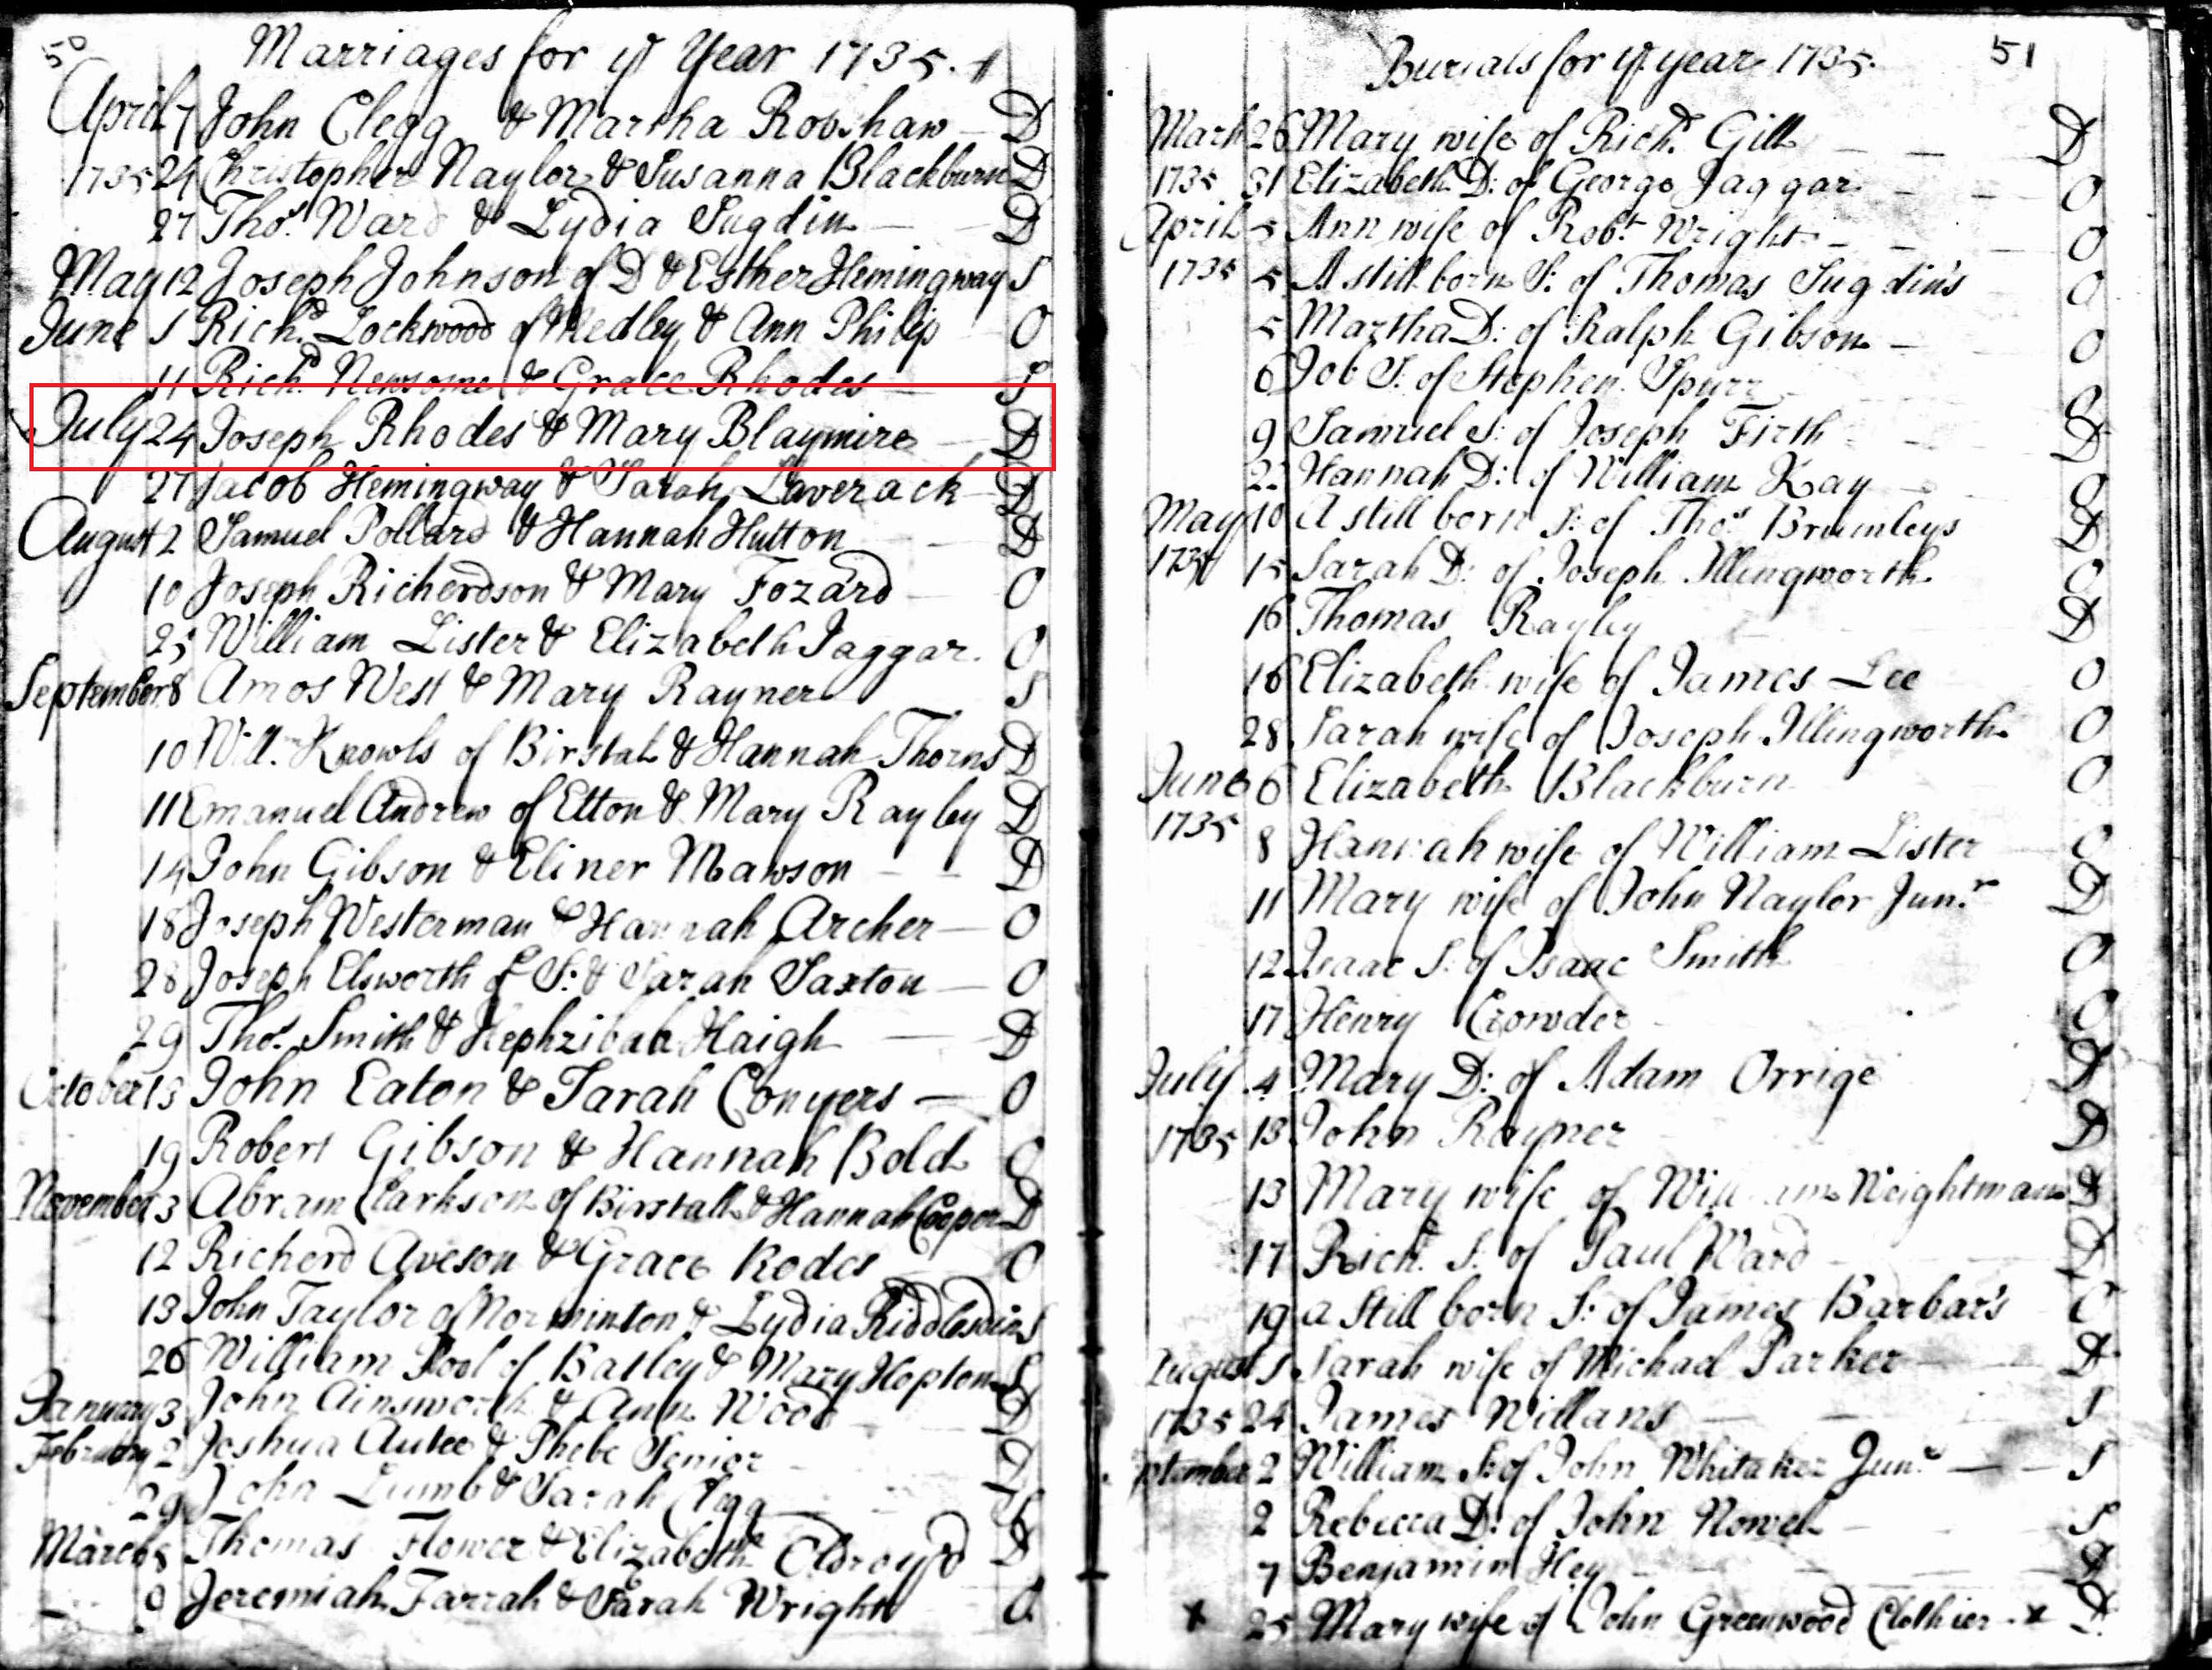 50
Marriages for yͤ Year 1735.
April 7 John Clegg & Martha Robshaw D
1735 24 Christopher Naylor & Susanna Blackburn D
27 Thoˢ. Ward & Lydia Sugdin D
May 12 Joseph Johnson of D & Esther Hemingway S
June 1 Richᵈ. Lockwood of Medley & Ann Philip O
11 Richᵈ. Newsome & Grace Rhodes S
July 24 Joseph Rhodes & Mary Blaymire D
27 Jacob Hemingway & Sarah Laverack D
August 2 Samuel Pollard & Hannah Hutton D
10 Joseph Richerdson & Mary Fozard O
25 William Lister & Elizabeth Jaggar. O
September 8 Amos West & Mary Rayner S
10 Willᵐ. Knowls of Birstal & Hannah Thorns D
11 Emanuel Andrew of Elton & Mary Rayley D
14 John Gibson & Eliner Mawson D
18 Joseph Westerman & Hannah Archer O
28 Joseph Elsworth of S: & Sarah Saxton O
29 Thoˢ. Smith & Hephzibah Haigh D
October 13 John Eaton & Sarah Conyers O
19 Robert Gibson & Hannah Bold O
November 3 Abram Clarkson of Birstall & Hannah Cooper D
12 Richerd Aveson & Grace Rodes O
13 John Taylor of Norminton & Lydia Riddlesdin S
26 William Pool of Batley & Mary Hopton S
January 3 John Ainsworth & Ann Wood D
February 2 Joshua Autee & Phebe Senior D
29 John Lumb & Sarah Clegg
March 8 Thomas Flower & Elizabeth Oldroyd D
9 Jeremiah Farrah & Sarah Wright O
51
Burials for yͤ year 1735.
March 26 Mary wife of Richᵈ. Gill D
1735 31 Elizabeth D: of George Jaggar O
April 5 Ann wife of Robᵗ. Wright O
1735 5 A still born S: of Thomas Sugdin's O
5 Martha D: of Ralph Gibson O
6 Job S: of Stephen Spurr O
9 Samuel S: of Joseph Firth D
22 Hannah D: of William Kay O
May 10 A still born S: of Thoˢ Brumleys D
1735 15 Sarah D: of Joseph Illingworth O
16 Thomas Rayley D
16 Elizabeth wife of James Lee O
28 Sarah wife of Joseph Illingworth O
June 6 Elizabeth Blackburn O
1735 8 Hannah wife of William Lister O
11 Mary wife of John Naylor Junʳ D
12 Isaac S: of Isaac Smith O
17 Henry Crowder O
July 4 Mary D: of Adam Orrige D
1735 13 John Rayner D
13 Mary wife of William Weightman D
17 Richᵈ. S: of Paul Ward D
19 a Still born S: of James Barbar's O
August 1 Sarah wife of Michael Parker D
1735 24 James Willans S
ptember 2 William S: of John Whitaker Junʳ S
2 Rebecca D: of John Nowel S
7 Benjamin Hey D
x 25 Mary wife of John Greenwood Clothier x D